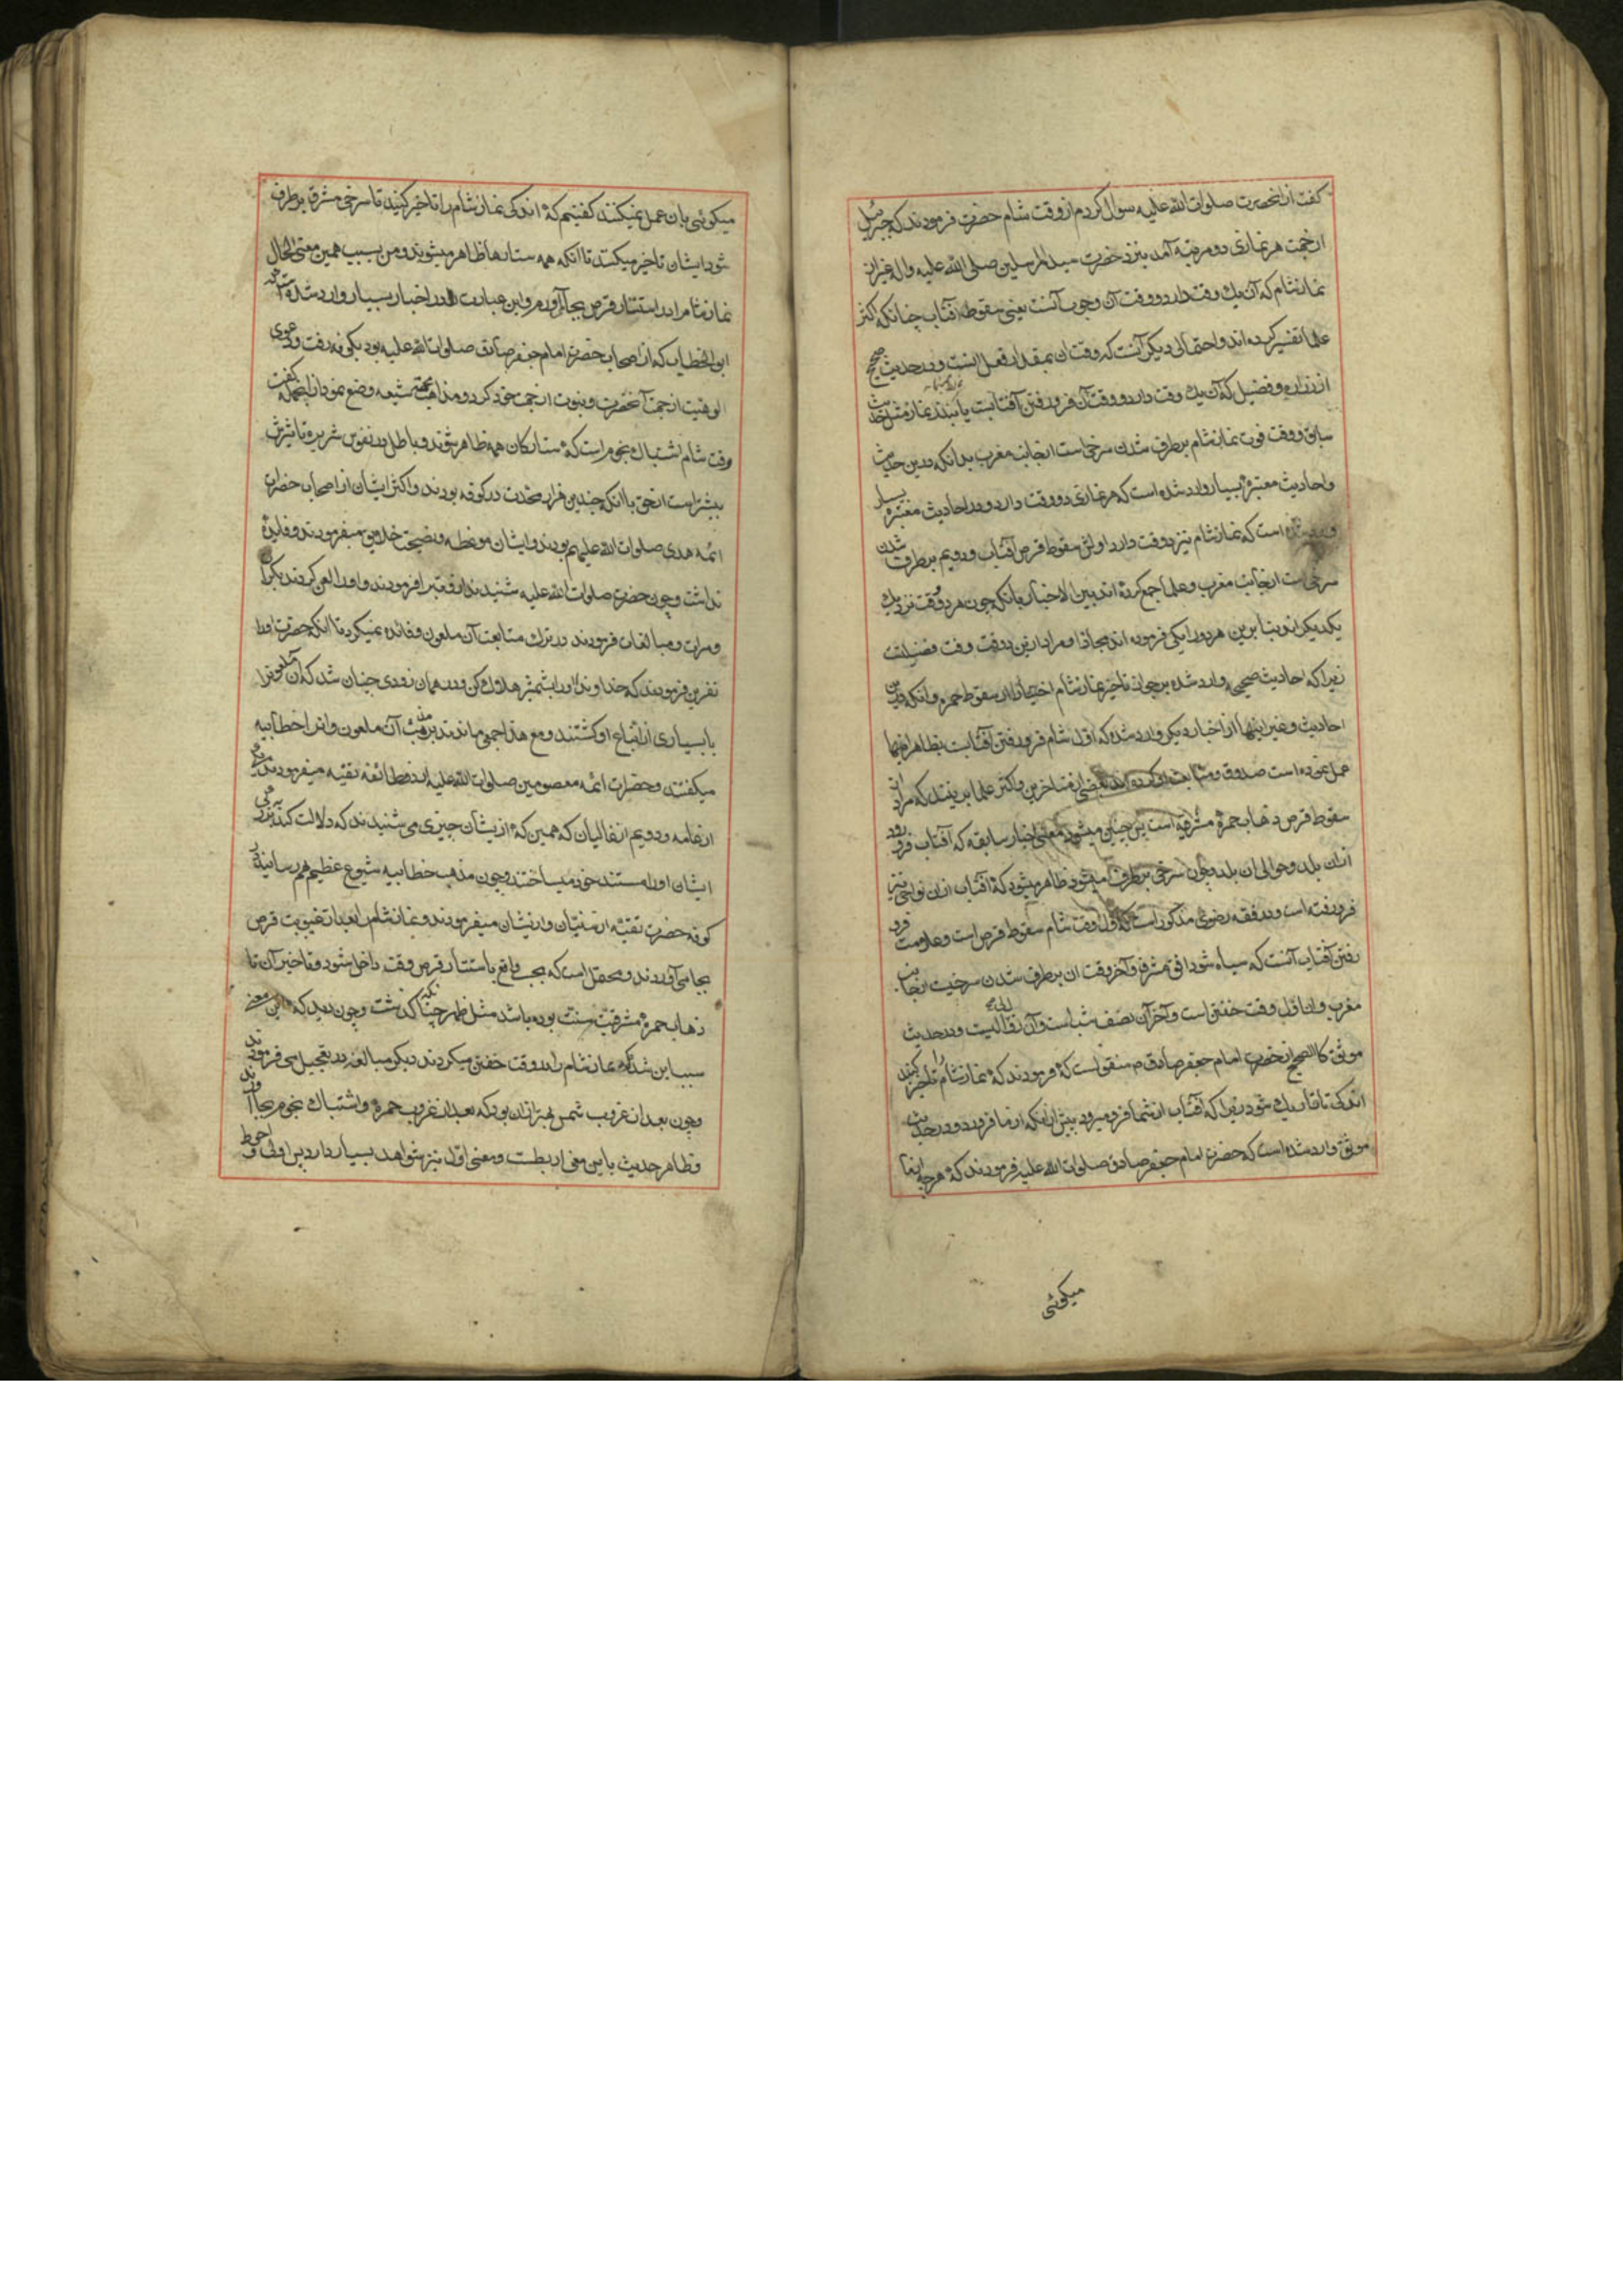 کفت از انحضرت صلوات الله علیه سؤال کردم از وقت شام حضرت فرمودند که جبرئیل
از جهت هر نمازی دو مرتبه آمد بنزد حضرت سید المرسلین صلی الله علیه و اله غیر از
نماز شام که آن یك وقت دارد و وقت آن وجوب آنست یعنی سقوط آفتاب چنانکه اکثر
علما تفسیر کرده اند و احتمالی دیکر آنست که وقت ان بمقدار فعل انست و در حدیث صحیح
از زراره و فضیل که آن یك وقت دارد و وقت آن فرو رفتن آفتابست
سابق و وقت فوت نماز شام بر طرف شدن سرخیست از جانب مغرب بدانکه درین حدیث
و احادیث معتبرهٔ بسیار وارد شده است که هر نمازی دو وقت دارد و در احادیث معتبرهٔ بسیار
است که نماز شام نیز دو وقت دارد اولش سقوط قرص آفتاب و دویم بر طرف شدن
سرخیست از جانب مغرب و علما جمع کرده اند بین الاخبار بانکه چون هر دو وقت نزدیك
یکدیکراند بنا برین هر دو را یکی فرموده اند مجازا و مراد ازین دو وقت وقت فضیلت
زیرا که احادیث صحیحه وارد شده بر جواز تاخیر نماز شام اختیارا از سقوط حمره و انکه درین
احادیث و غیر اینها از اخبار دیکر وارد شده که اول شام فرو رفتن آفتابست بظاهر اینها
عمل نموده است صدوق و متابعت او کرده اند بعضی از متاخرین و اکثر علما برینند که مراد از
سقوط قرص ذهاب حمرهٔ مشرقیه است پس چنین میشود معنی اخبار سابقه که آفتاب فرو رود
ازان بلد و حوالی ان بلد و چون سرخی برطرف میشود ظاهر میشود که آفتاب ازان نواحی نیز
فرو رفته است و در فقه رضوی مذکور است که اول وقت شام سقوط قرص است و علامت فرو
رفتن آفتاب آنست که سیاه شود افق مشرق و آخر وقت ان بر طرف شدن سرخیست از جانب
مغرب و ان اول وقت خفتن است و آخر آن نصف شب است و آن زوال لیل است و در حدیث
موثق کالصحیح از حضرت امام جعفر صادق ع منقولست که فرمودند که نماز شام را تاخیر کنید
اندکی تا تاریك شود زیرا که آفتاب از شما فرو میرود پیش ازانکه از ما فرو رود و در حدیث
موثق وارد شده است که حضرت امام جعفر صادق صلوات الله علیه فرمودند که هر چه
میکوئی
میکوئی بان عمل نمیکنند کفتیم که اندکی نماز شام را تاخیر کنید تا سرخی مشرق برطرف
شود ایشان تاخیر میکنند تا انکه همه ستارها ظاهر میشوند و من بسبب همین معنی الحال
نماز شام را در استتار قرص بجا می آورم و این عبارت در اخبار بسیار وارد شده است که
ابو الخطاب که از اصحاب حضرت امام جعفر صادق صلوات الله علیه بود بکوفه رفت و دعوی
الوهیت از جهت آنحضرت و نبوت از جهت خود کرد و مذاهب شیعه وضع نمود ازانجمله کفت
وقت شام اشتباك نجوم است که ستارکان همه ظاهر شوند و باطل در نفوس شریره تاثیرش
بیشتر است از حق با انکه چندین هزار محدث در کوفه بودند و اکثر ایشان از اصحاب حضرات
ائمه هدی صلوات الله علیهم بودند و ایشان موعظه و نصیحت خلایق میفرمودند و فایدهٔ
نداشت و چون حضرت صلوات الله علیه شنیدند ازو تبرا فرمودند و او را لعن کردند بکرات
و مرات و مبالغات فرمودند در ترك متابعت آن ملعون و فائده نمیکرد تا انکه حضرت او را
نفرین فرمودند که خداوندا او را بشمشیر هلاك کن و در همان زودی چنان شد که آن ملعون را
با بسیاری از اتباع او کشتند و مع هذا جمعی ماندند بر مذهب آن ملعون و انرا خطابیه
میکفتند و حضرات ائمه معصومین صلوات الله علیهم از دو طائفه تقیه میفرمودند یکی
از عامه و دویم از غالیان که همین که از یشان چیزی می شنیدند که دلالت کند بر بزرکی
ایشان او را مستند خود میساختند و چون مذهب خطابیه شیوع عظیم بهم رسانید در
کوفه حضرت تقیه از سنیان و ازیشان میفرمودند و نماز شام را بعد از غیبوبت قرص
بجا می آوردند و محتمل است که بحسب واقع باستتار قرص وقت داخل شود و تاخیر آن تا
ذهاب حمرهٔ مشرقیه سنت بوده باشد مثل ظهر چنانکه کذشت و چون دیدند که این معنی
سبب این شد که نماز شام را در وقت خفتن میکردند دیکر مبالغه در تعجیل می فرمودند
و چون بعد از غروب شمس بهتر ازان بود که بعد از غروب حمره و اشتباك نجوم بجا آورند
و ظاهر حدیث باین معنی اربطست و معنی اول نیز شواهد بسیار دارد پس اولی و احوط